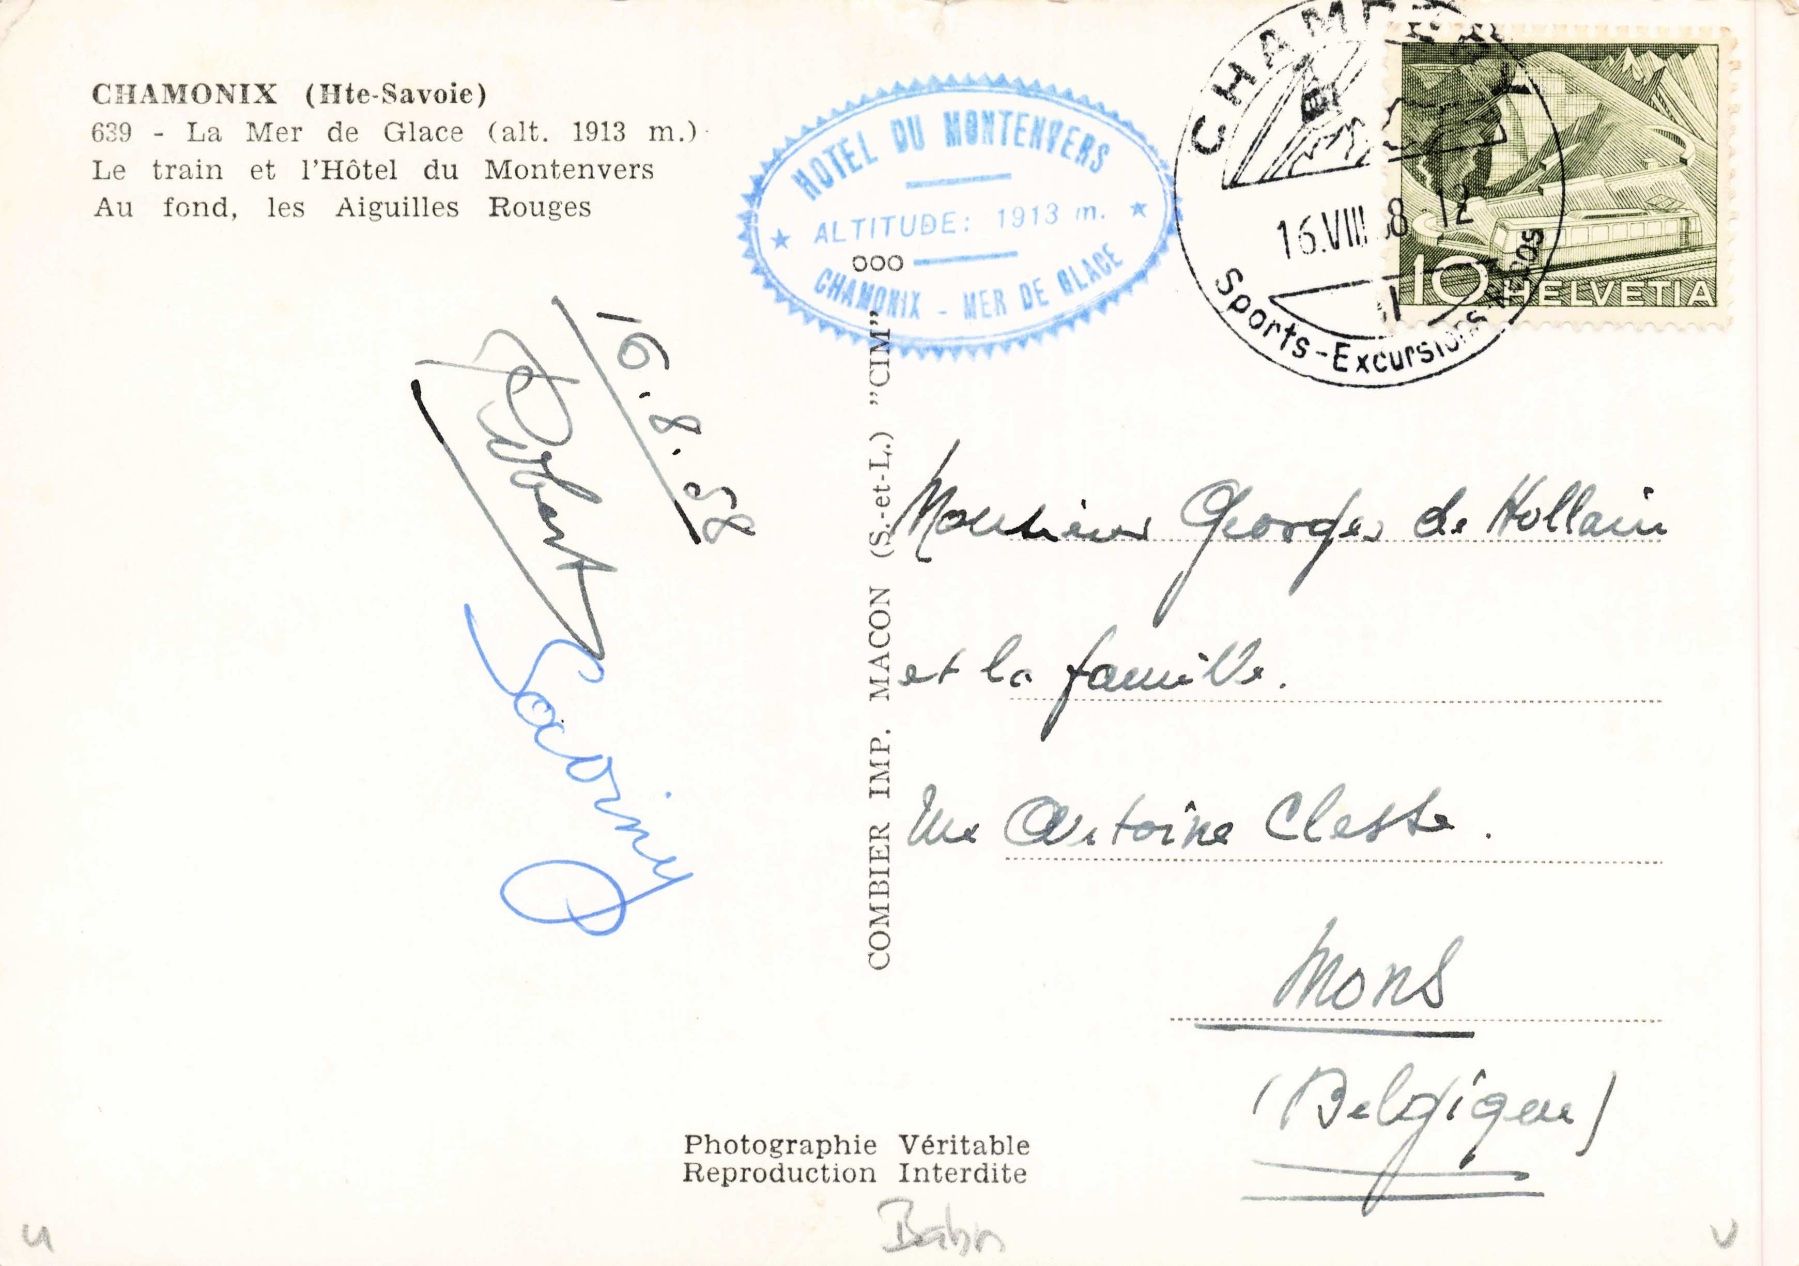 CHAMONIX (Hte-Savoie)
639 - La Mer de Glace (alt. 1913 m.)
Le train et l'Hôtel du Montenvers
Au fond, les Aiguilles Rouges
HOTEL DU MONTENVERS
★ ALTITUDE: 1913 m. ★
CHAMONIX - MER DE GLACE
ooo
16.VIII 58 12
Sports-Excursions-Repos
10 HELVETIA
16.8.58
COMBIER IMP. MACON (S.-et-L.) "CIM"
Monsieur Georges de Hollain
et la famille.
Rue Antoine Clesse.
Mons
(Belgique)
Photographie Véritable
Reproduction Interdite
Bahn